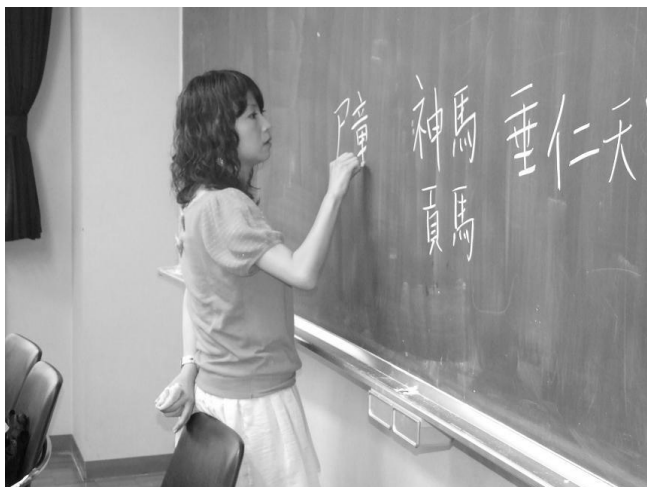 神馬 垂仁天
貢馬